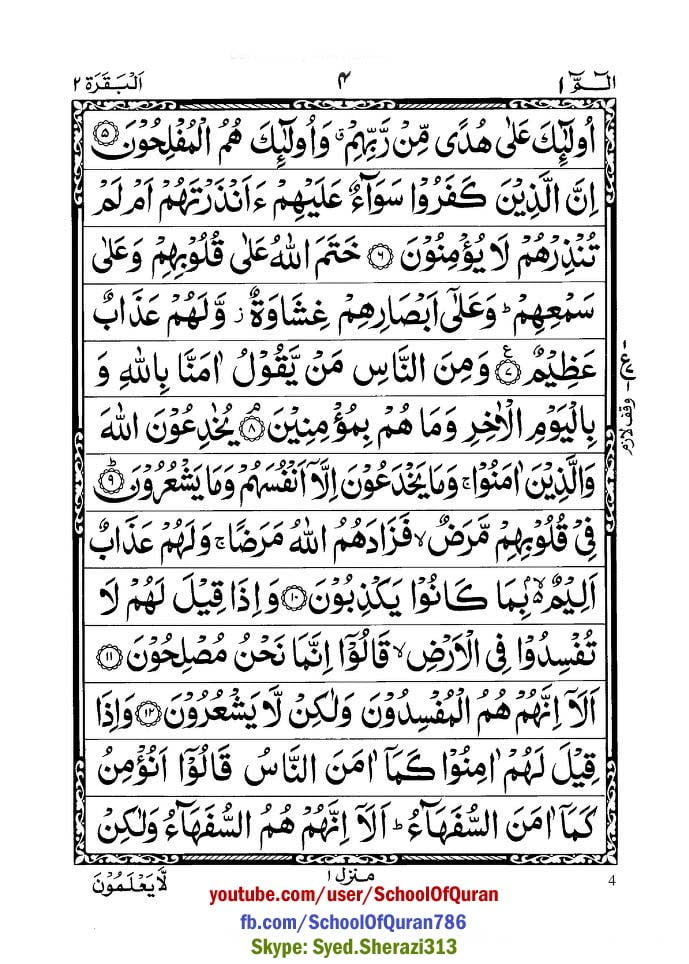 الٓمّٓ ١ ٤ اَلْبَقَرَة ٢
اُولٰٓئِكَ عَلٰى هُدًى مِّنْ رَّبِّهِمْ ۗ وَاُولٰٓئِكَ هُمُ الْمُفْلِحُوْنَ ۝٥
اِنَّ الَّذِيْنَ كَفَرُوْا سَوَآءٌ عَلَيْهِمْ ءَاَنْذَرْتَهُمْ اَمْ لَمْ
تُنْذِرْهُمْ لَا يُؤْمِنُوْنَ ۝٦ خَتَمَ اللّٰهُ عَلٰى قُلُوْبِهِمْ وَعَلٰى
سَمْعِهِمْ ؕ وَعَلٰٓى اَبْصَارِهِمْ غِشَاوَةٌ ز وَّلَهُمْ عَذَابٌ
عَظِيْمٌ ۝٧ ع وَمِنَ النَّاسِ مَنْ يَّقُوْلُ اٰمَنَّا بِاللّٰهِ وَ
بِالْيَوْمِ الْاٰخِرِ وَمَا هُمْ بِمُؤْمِنِيْنَ ۝٨ۘ يُخٰدِعُوْنَ اللّٰهَ
وَالَّذِيْنَ اٰمَنُوْا ۚ وَمَا يَخْدَعُوْنَ اِلَّآ اَنْفُسَهُمْ وَمَا يَشْعُرُوْنَ ۝٩ؕ
فِيْ قُلُوْبِهِمْ مَّرَضٌ ۙ فَزَادَهُمُ اللّٰهُ مَرَضًا ۚ وَلَهُمْ عَذَابٌ
اَلِيْمٌۢ ۙ بِمَا كَانُوْا يَكْذِبُوْنَ ۝١٠ وَاِذَا قِيْلَ لَهُمْ لَا
تُفْسِدُوْا فِى الْاَرْضِ ۙ قَالُوْٓا اِنَّمَا نَحْنُ مُصْلِحُوْنَ ۝١١
اَلَآ اِنَّهُمْ هُمُ الْمُفْسِدُوْنَ وَلٰكِنْ لَّا يَشْعُرُوْنَ ۝١٢ وَاِذَا
قِيْلَ لَهُمْ اٰمِنُوْا كَمَآ اٰمَنَ النَّاسُ قَالُوْٓا اَنُؤْمِنُ
كَمَآ اٰمَنَ السُّفَهَآءُ ؕ اَلَآ اِنَّهُمْ هُمُ السُّفَهَآءُ وَلٰكِنْ
وقف لازم
منزل ١
لَّا يَعْلَمُوْنَ
4
youtube.com/user/SchoolOfQuran
fb.com/SchoolOfQuran786
Skype: Syed.Sherazi313